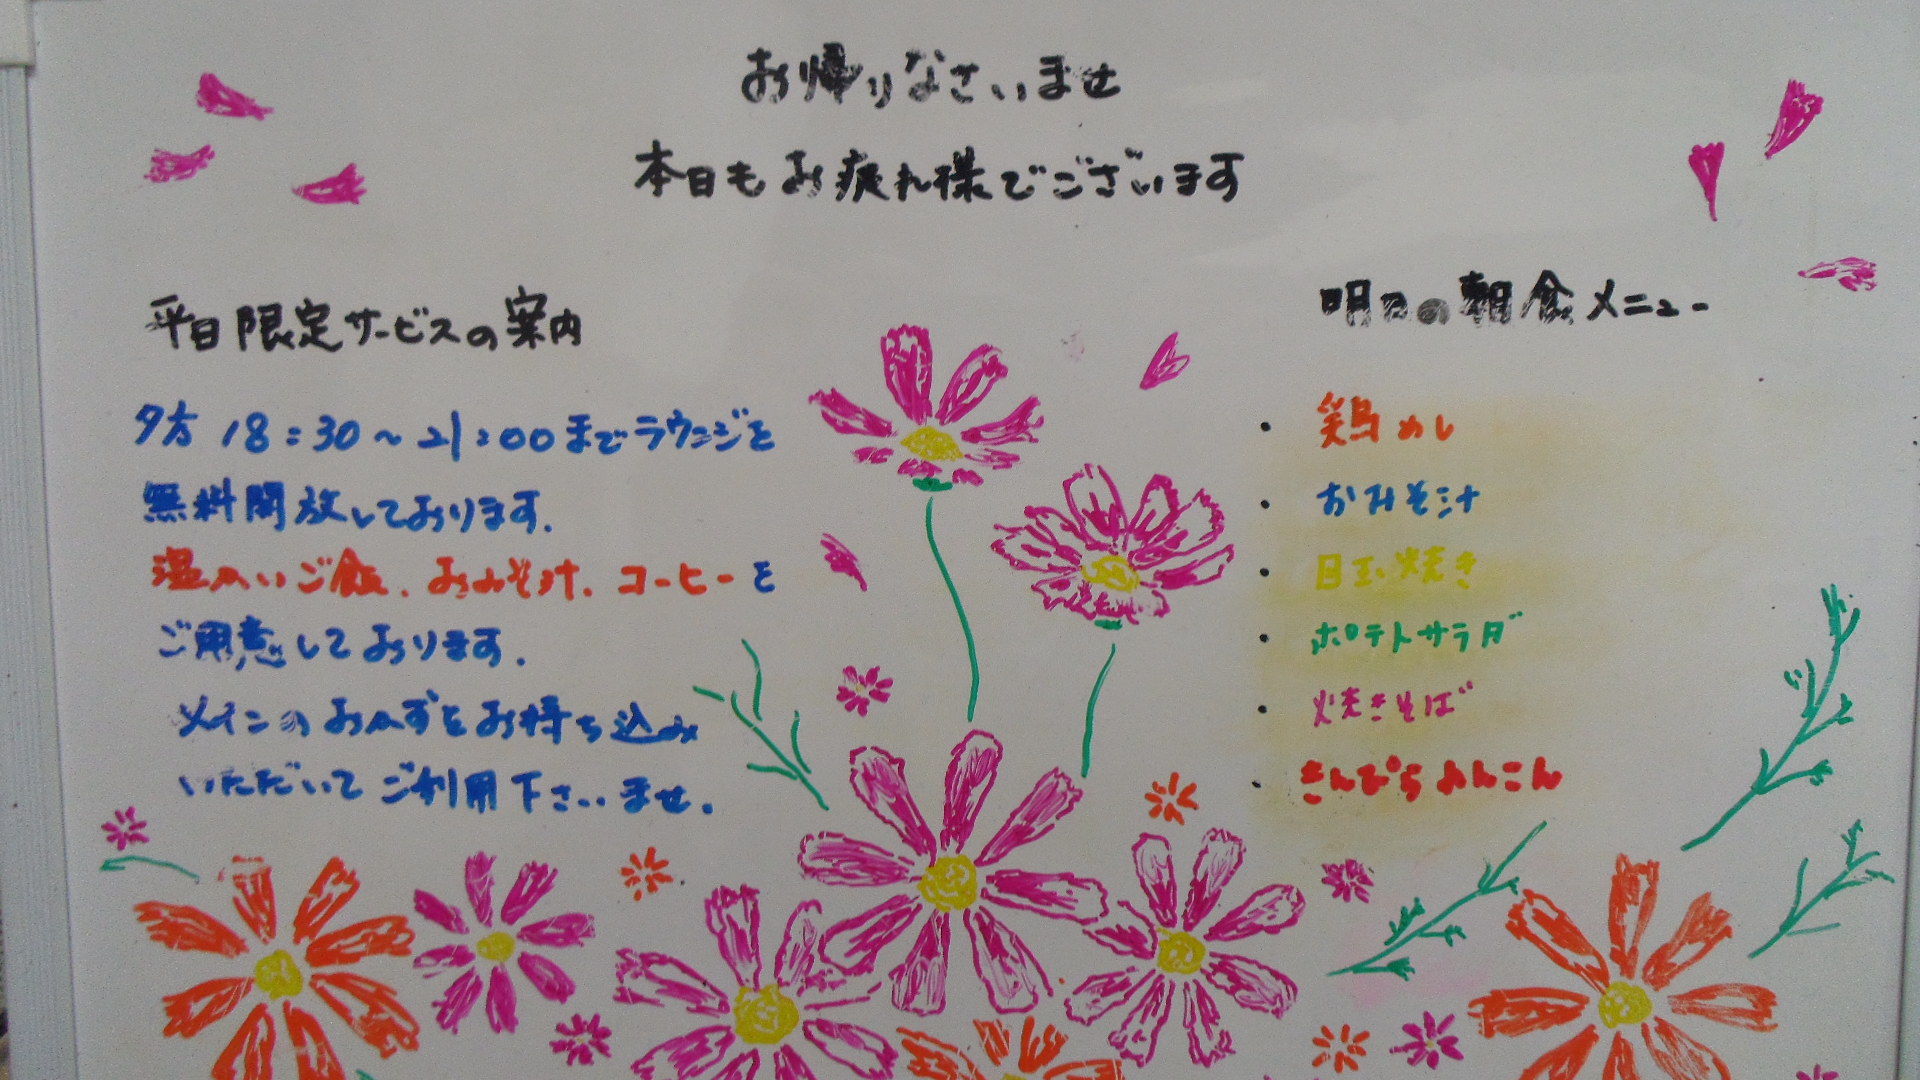 お帰りなさいませ
本日もお疲れ様でございます
平日限定サービスの案内
夕方 18:30～21:00までラウンジを
無料開放しております.
温かいご飯、おみそ汁、コーヒーを
ご用意しております.
メインのおかずをお持ち込み
いただいてご利用下さいませ.
明日の朝食メニュー
・鶏めし
・おみそ汁
・目玉焼き
・ポテトサラダ
・焼きそば
・きんぴられんこん